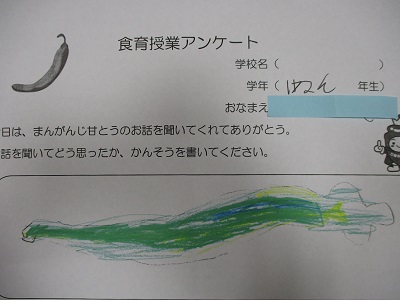 食育授業アンケート
学校名( )
学年( 年生)
おなまえ
日は、まんがんじ甘とうのお話を聞いてくれてありがとう。
話を聞いてどう思ったか、かんそうを書いてください。